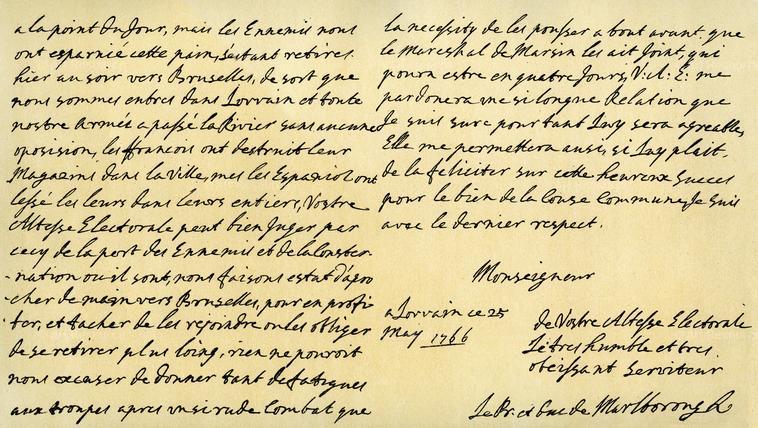 a la point du Jour, mais les Ennemis nous
ont esparnié cette pain, s'estant retires
hier au soir vers Bruselles, de sort que
nous sommes entres dans Lorvain et toute
nostre Armée a passé la Rivier sans aucune
oposision, les francois ont destruit leur
Magazins dans la Ville, mes les Espaniol ont
lessé les leurs dans leurs entiers, Vostre
Altesse Electorale peut bien Juger par
cecy de la port des Ennemis et de la Conster-
-nation ou il sont, nous faisons estat d'apro
-cher de main vers Bruselles, pour en profi-
ter, et tacher de les rejoindre ou les obliger
de se retirer plus loing, rien ne pouvoit
nous excuser de donner tant de fatigues
aux troupes apres un si rude Combat que
la necessity de les pousser a bout avant que
le Mareshal de Marsin les ait Joint, qui
pourra estre en quatre Jours, V: A: E: me
pardonera une si longue Relation que
Je suis sure pourtant Luy sera agreable,
Elle me permettera ausi, si Luy plait,
de la feliciter sur cette heureux succes
pour le bien de la Couse Commune, Je suis
avec le dernier respect.
Monseigneur
a Lorvain ce 25
May 1766
de Vostre Altesse Electorale
Le tres humble et tres
obeissant Serviteur
Le Pr. et Duc de Marlborough